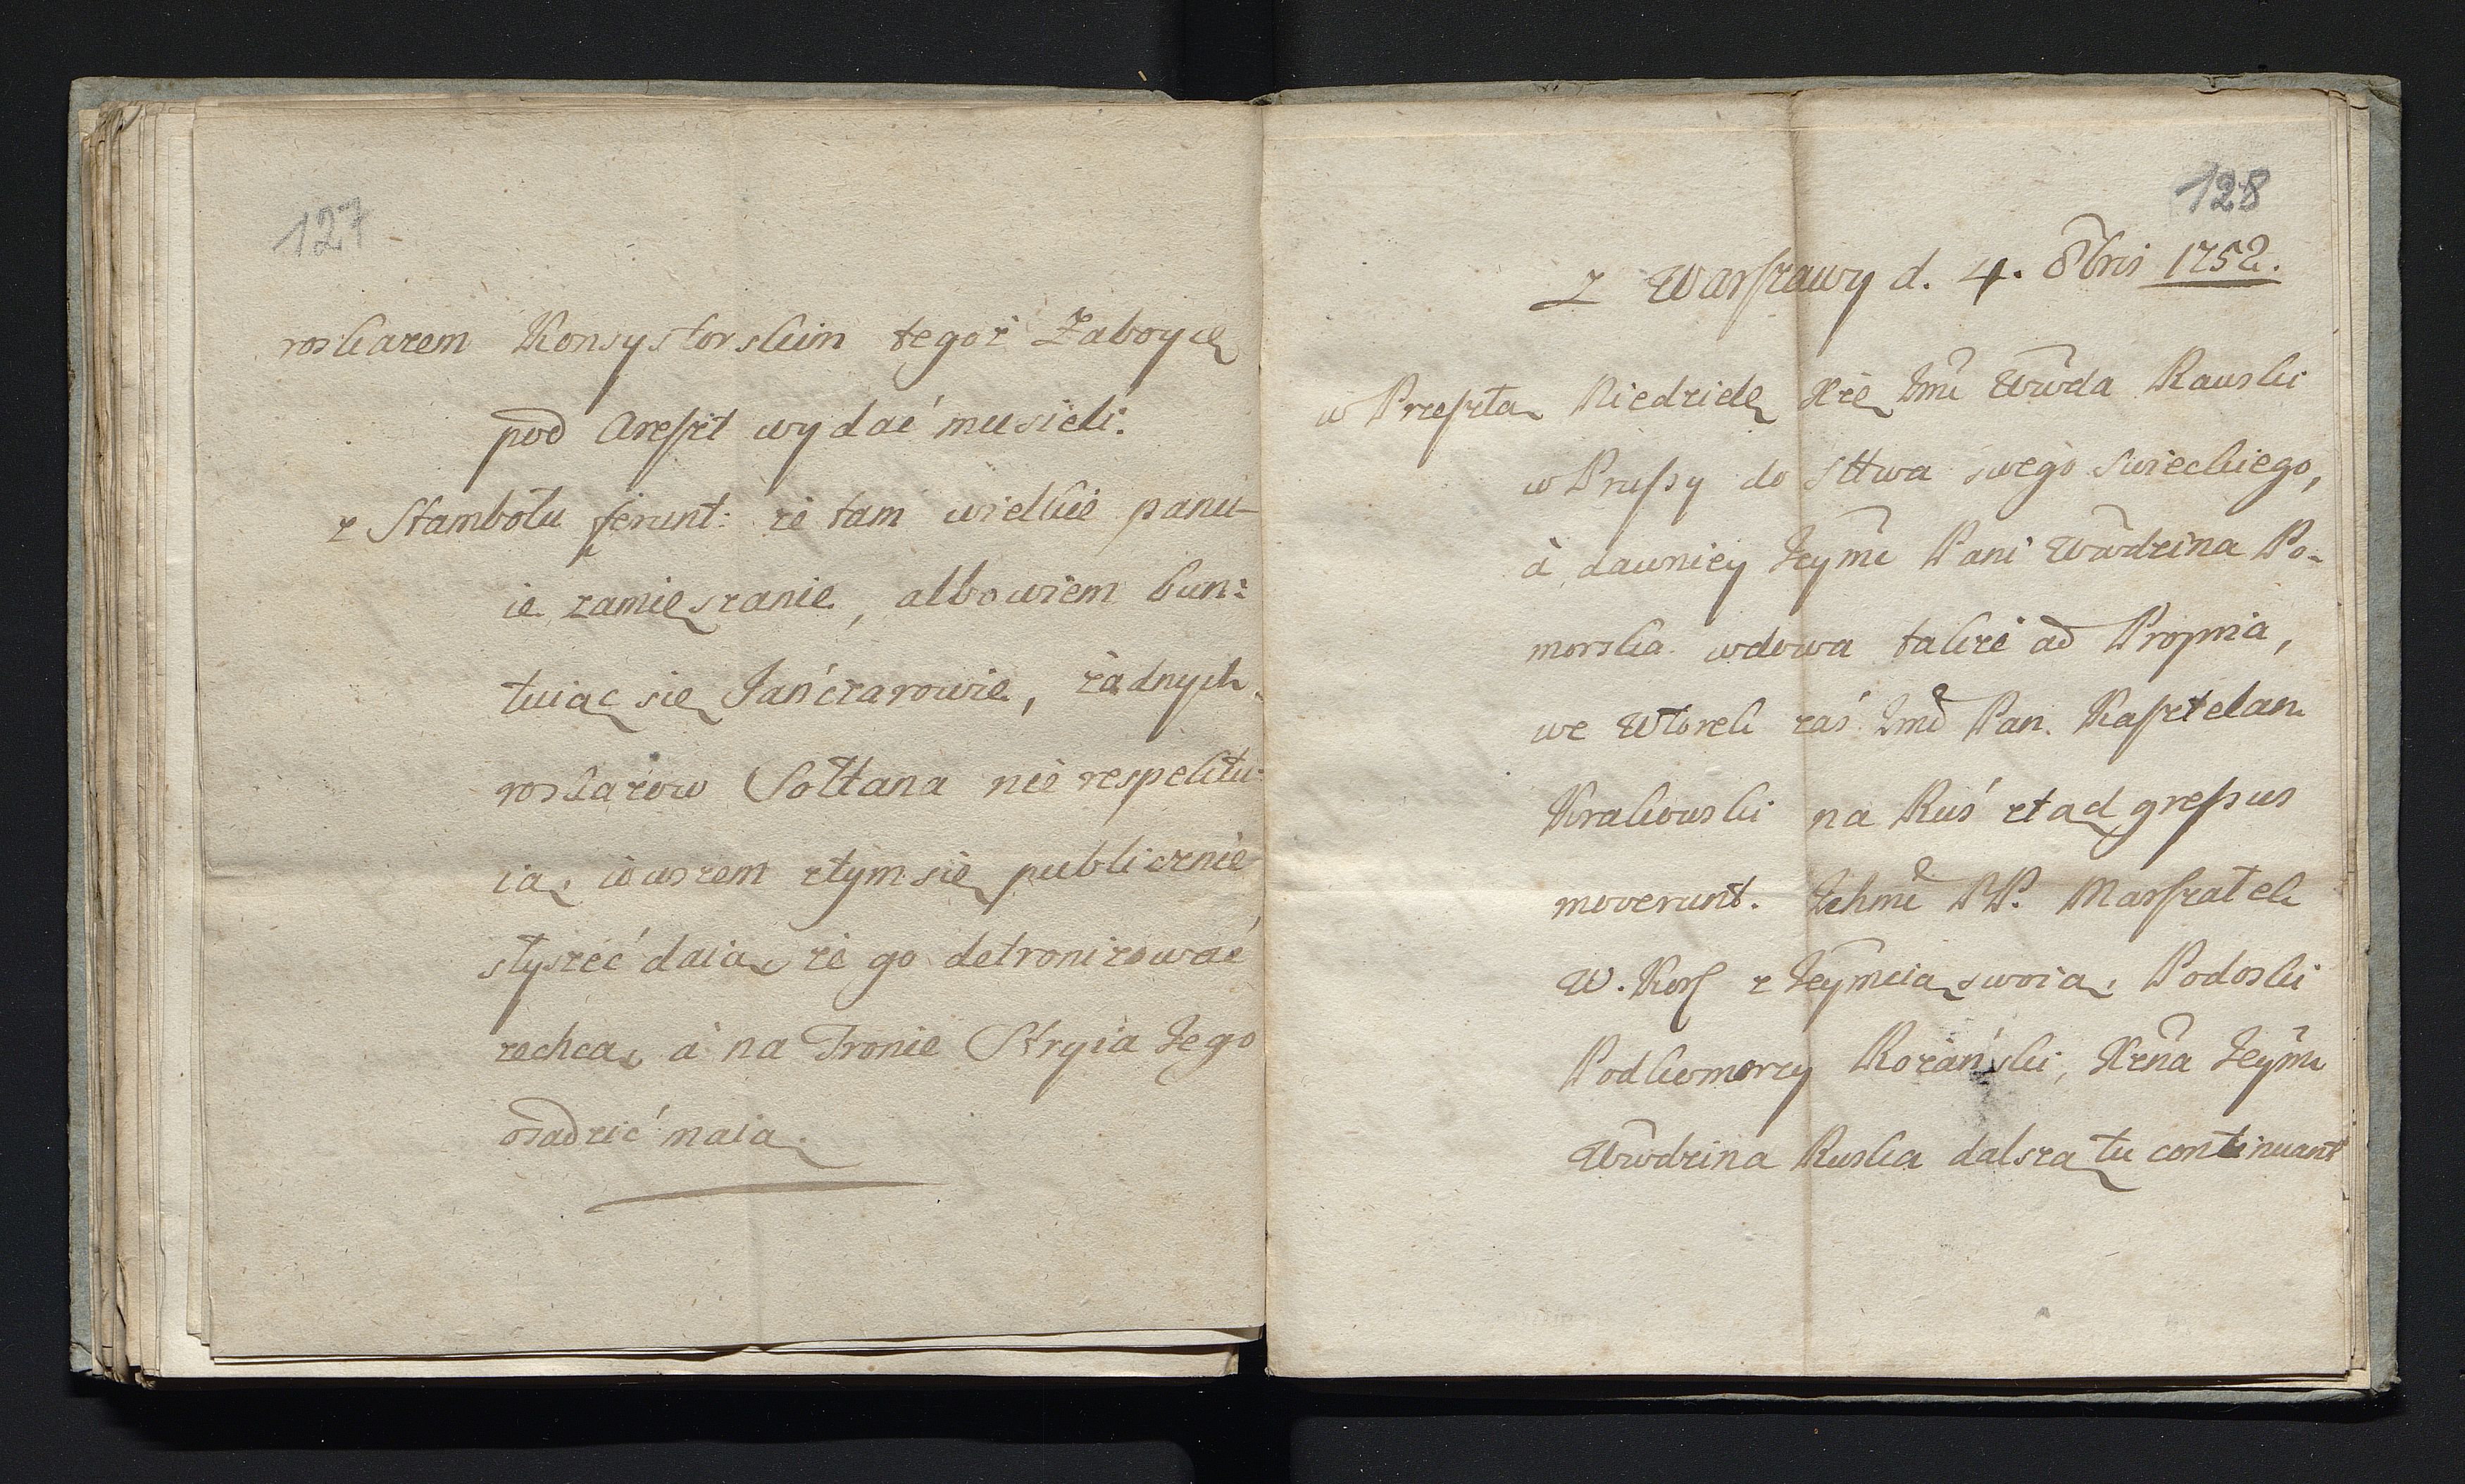 127
roskazem Konsystorskim tegoż Zaboycę
pod Areszt wydać musieli.
z Stambołu ferunt: że tam wielkie panu-
ie zamięszanie, albowiem bun:
tuiąc się Jańczarowie, żadnych
roskazow Sołtana nie respektu:
ią, iwszem ztym się publicznie
słyszeć daią, że go detronizować
zechcą, à na Tronie Stryia Jego
osadzić maią.
128
Z Warszawy d. 4. 8bris 1752.
w Przeszłą Niedzielę Xżę Jmć Wwda Rawski
w Prussy do Sttwa swego Swieckiego,
à dawniey Jeymć Pani Wwdzina Po-
morska wdowa także ad Propria,
we Wtorek zaś Jmć Pan Kasztelan
Krakowski na Ruś ztąd gressus
moverunt. Ichmć PP. Marszałek
W. Kor z Jeymcią swoią, Podoski
Podkomorzy Rożański, Xżna Jeymć
Wwdzina Ruska dalszą tu continuant